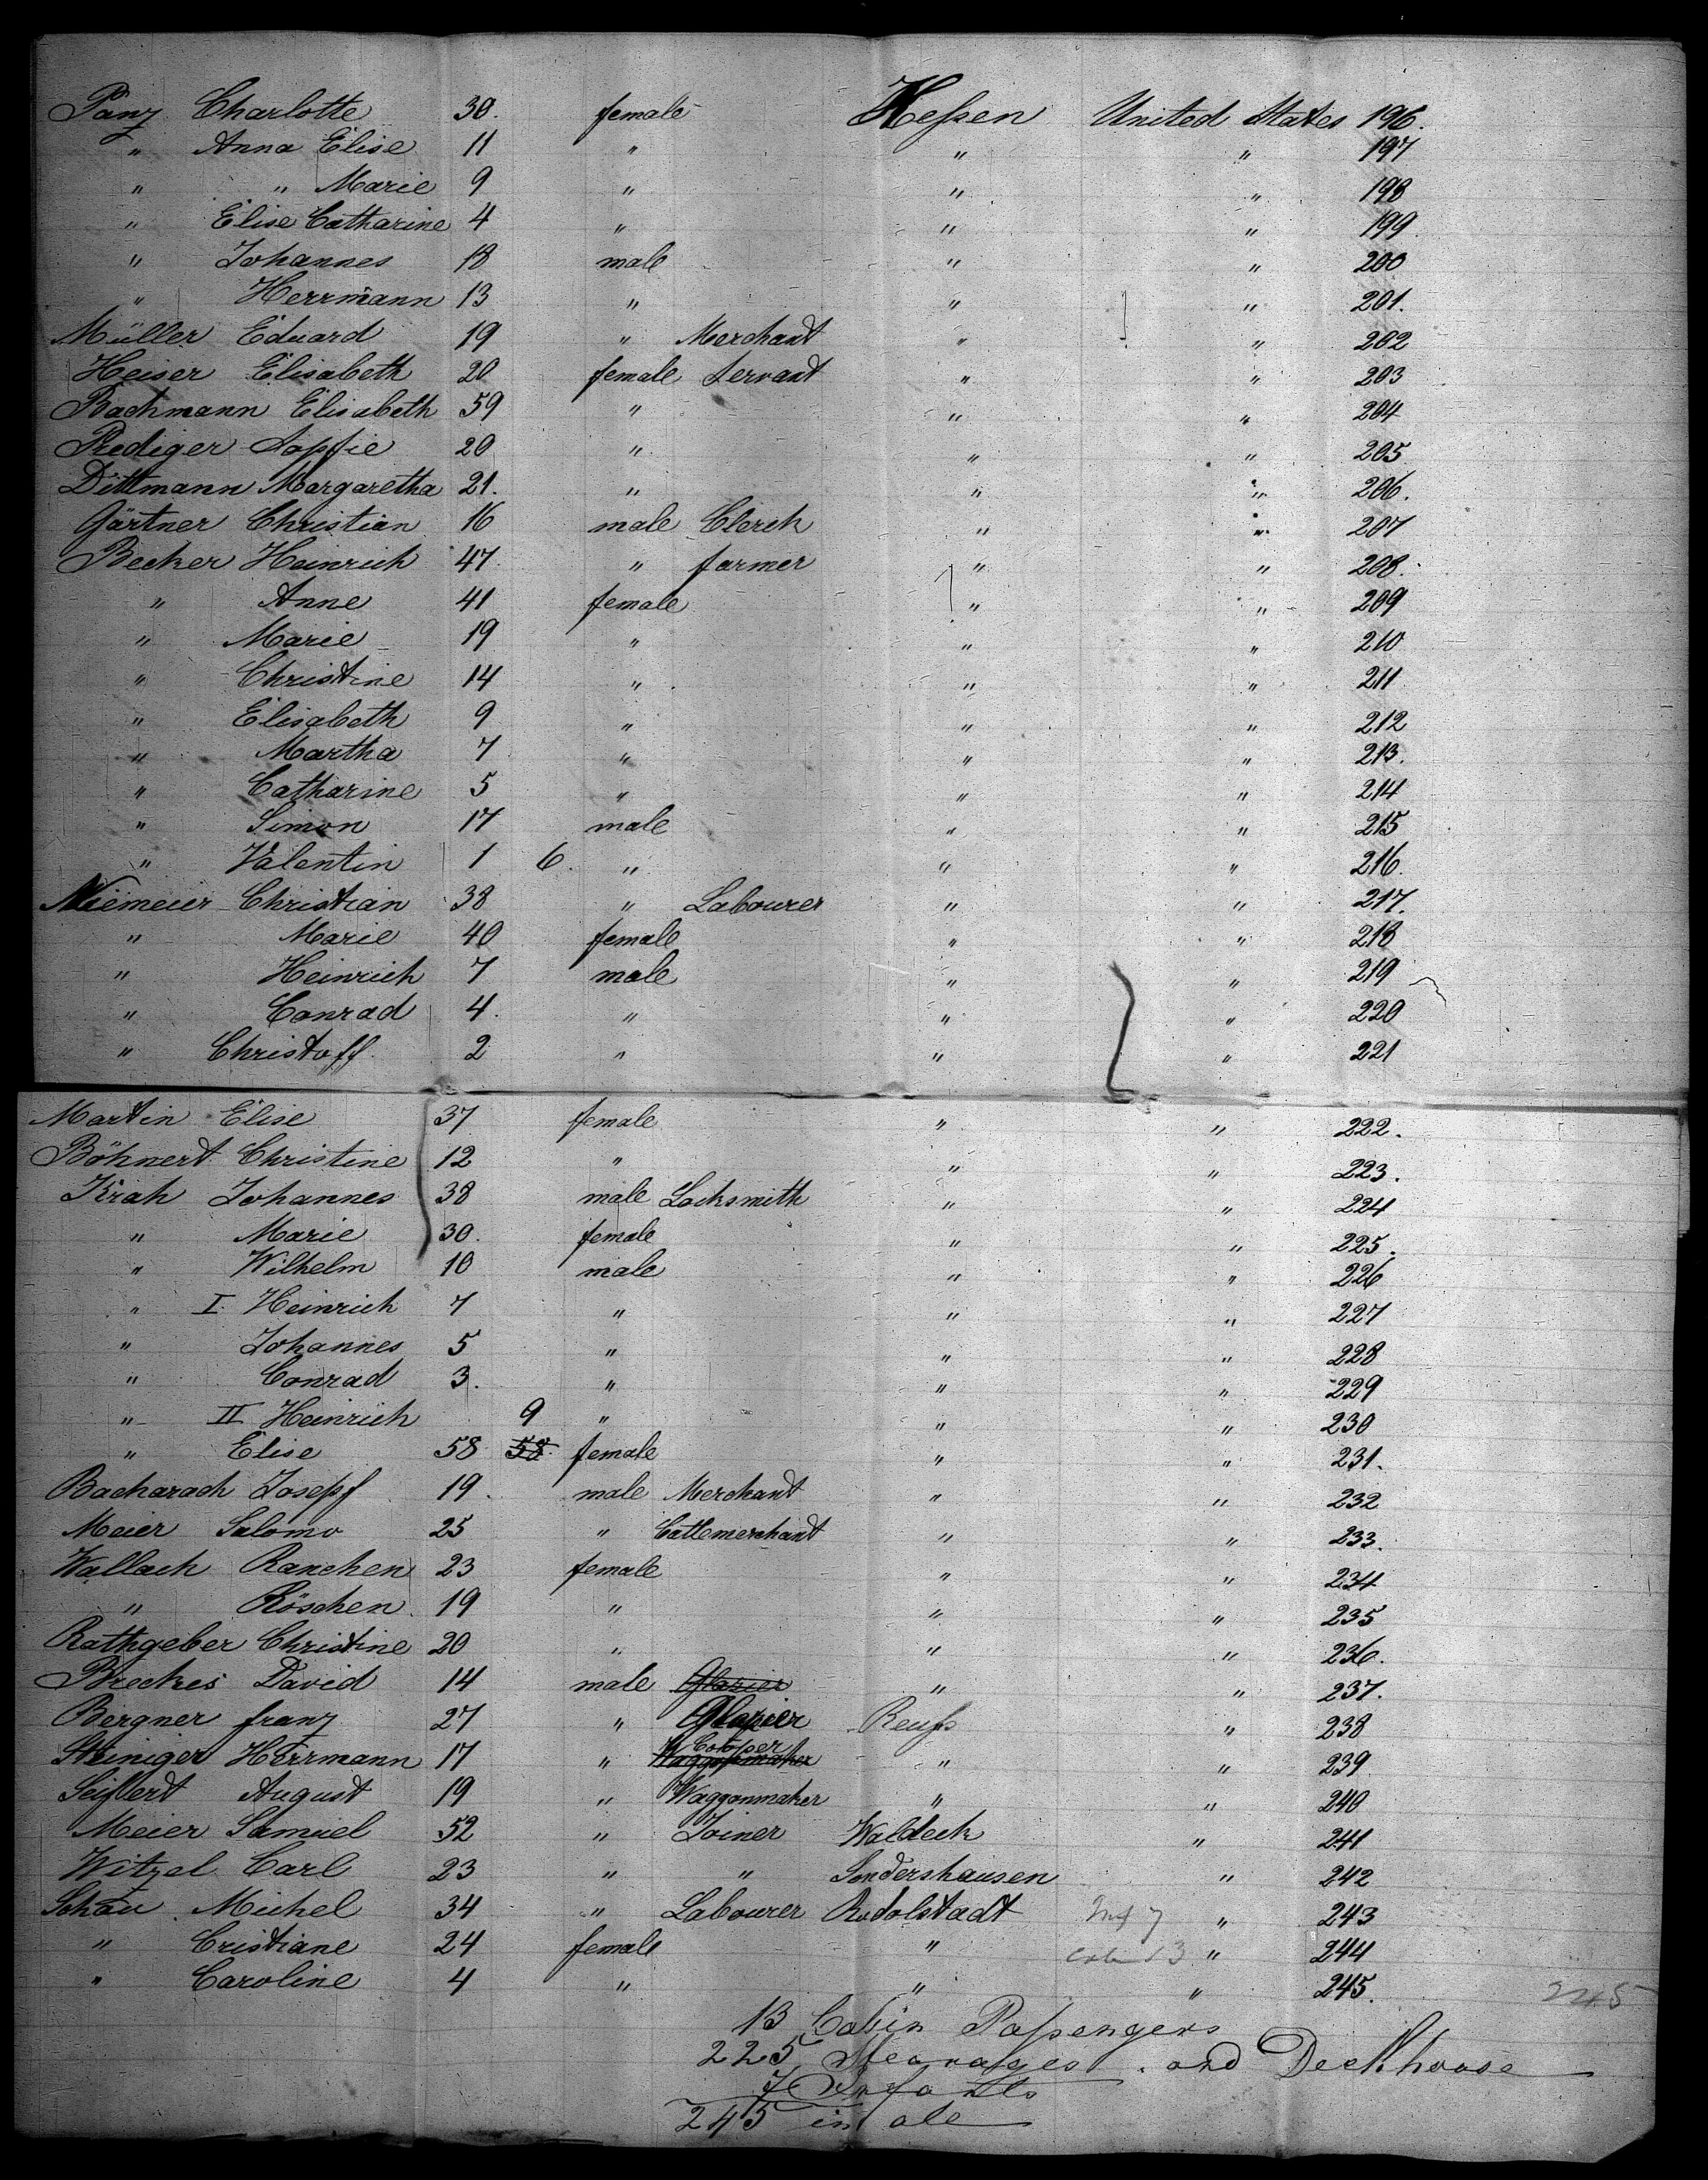 Panz Charlotte 30. female Heßen United States 196.
" Anna Elise 11 " " " 197
" " Marie 9 " " " 198
" Elise Catharine 4 " " " 199
" Johannes 18 male " " 200
" Herrmann 13 " " " 201.
Müller Eduard 19 " Merchant " " 202
Heiser Elisabeth 20 female Servant " " 203
Bachmann Elisabeth 59 " " " 204
Prediger Sopfie 20 " " " 205
Dittmann Margaretha 21. " " " 206.
Gärtner Christian 16 male Clerck " " 207
Becker Heinrich 47. " farmer " " 208.
" Anne 41 female " " 209
" Marie 19 " " " 210
" Christine 14 " " " 211
" Elisabeth 9 " " " 212
" Martha 7 " " " 213.
" Catharine 5 " " " 214
" Simon 17 male " " 215
" Valentin 1 6. " " " 216.
Niemeier Christian 38 " Labourer " " 217.
" Marie 40 female " " 218
" Heinrich 7 male " " 219
" Conrad 4. " " " 220
" Christoff. 2 " " " 221
Martin Elise 37 female " " 222.
Böhnert Christine 12 " " " 223.
Krah Johannes 38 male Locksmith " " 224
" Marie 30. female " " 225.
" Wilhelm 10 male " " 226
" I. Heinrich 7 " " " 227
" Johannes 5 " " " 228
" Conrad 3. " " " 229
" II Heinrich 9 " " " 230
" Elise 58 58. female " " 231.
Bacharach Josepf 19. male Merchant " " 232
Meier Salomo 25 " Cattlemerchant " " 233.
Wallach Ranchen 23 female " " 234
" Röschen 19 " " " 235
Rathgeber Christine 20 " " " 236.
Breckes David 14 male Glazier " " 237.
Bergner franz 27 " Glazier Reuß " 238
Steiniger Herrmann 17 " Waggonmaker Cooper " " 239
Seiffert August 19 " Waggonmaker " " 240
Meier Samuel 52 " Joiner Waldeck " 241
Witzel Carl 23 " " Sondershausen " 242
Schau Michel 34 " Labourer Rudolstadt Inf 7 " 243
" Cristiane 24 female " Cab 13 " 244
" Caroline 4 " " " 245. 245
13 Cabin Paßengers
225 Stearages. and Deckhouse
7 Infants
245 in ale